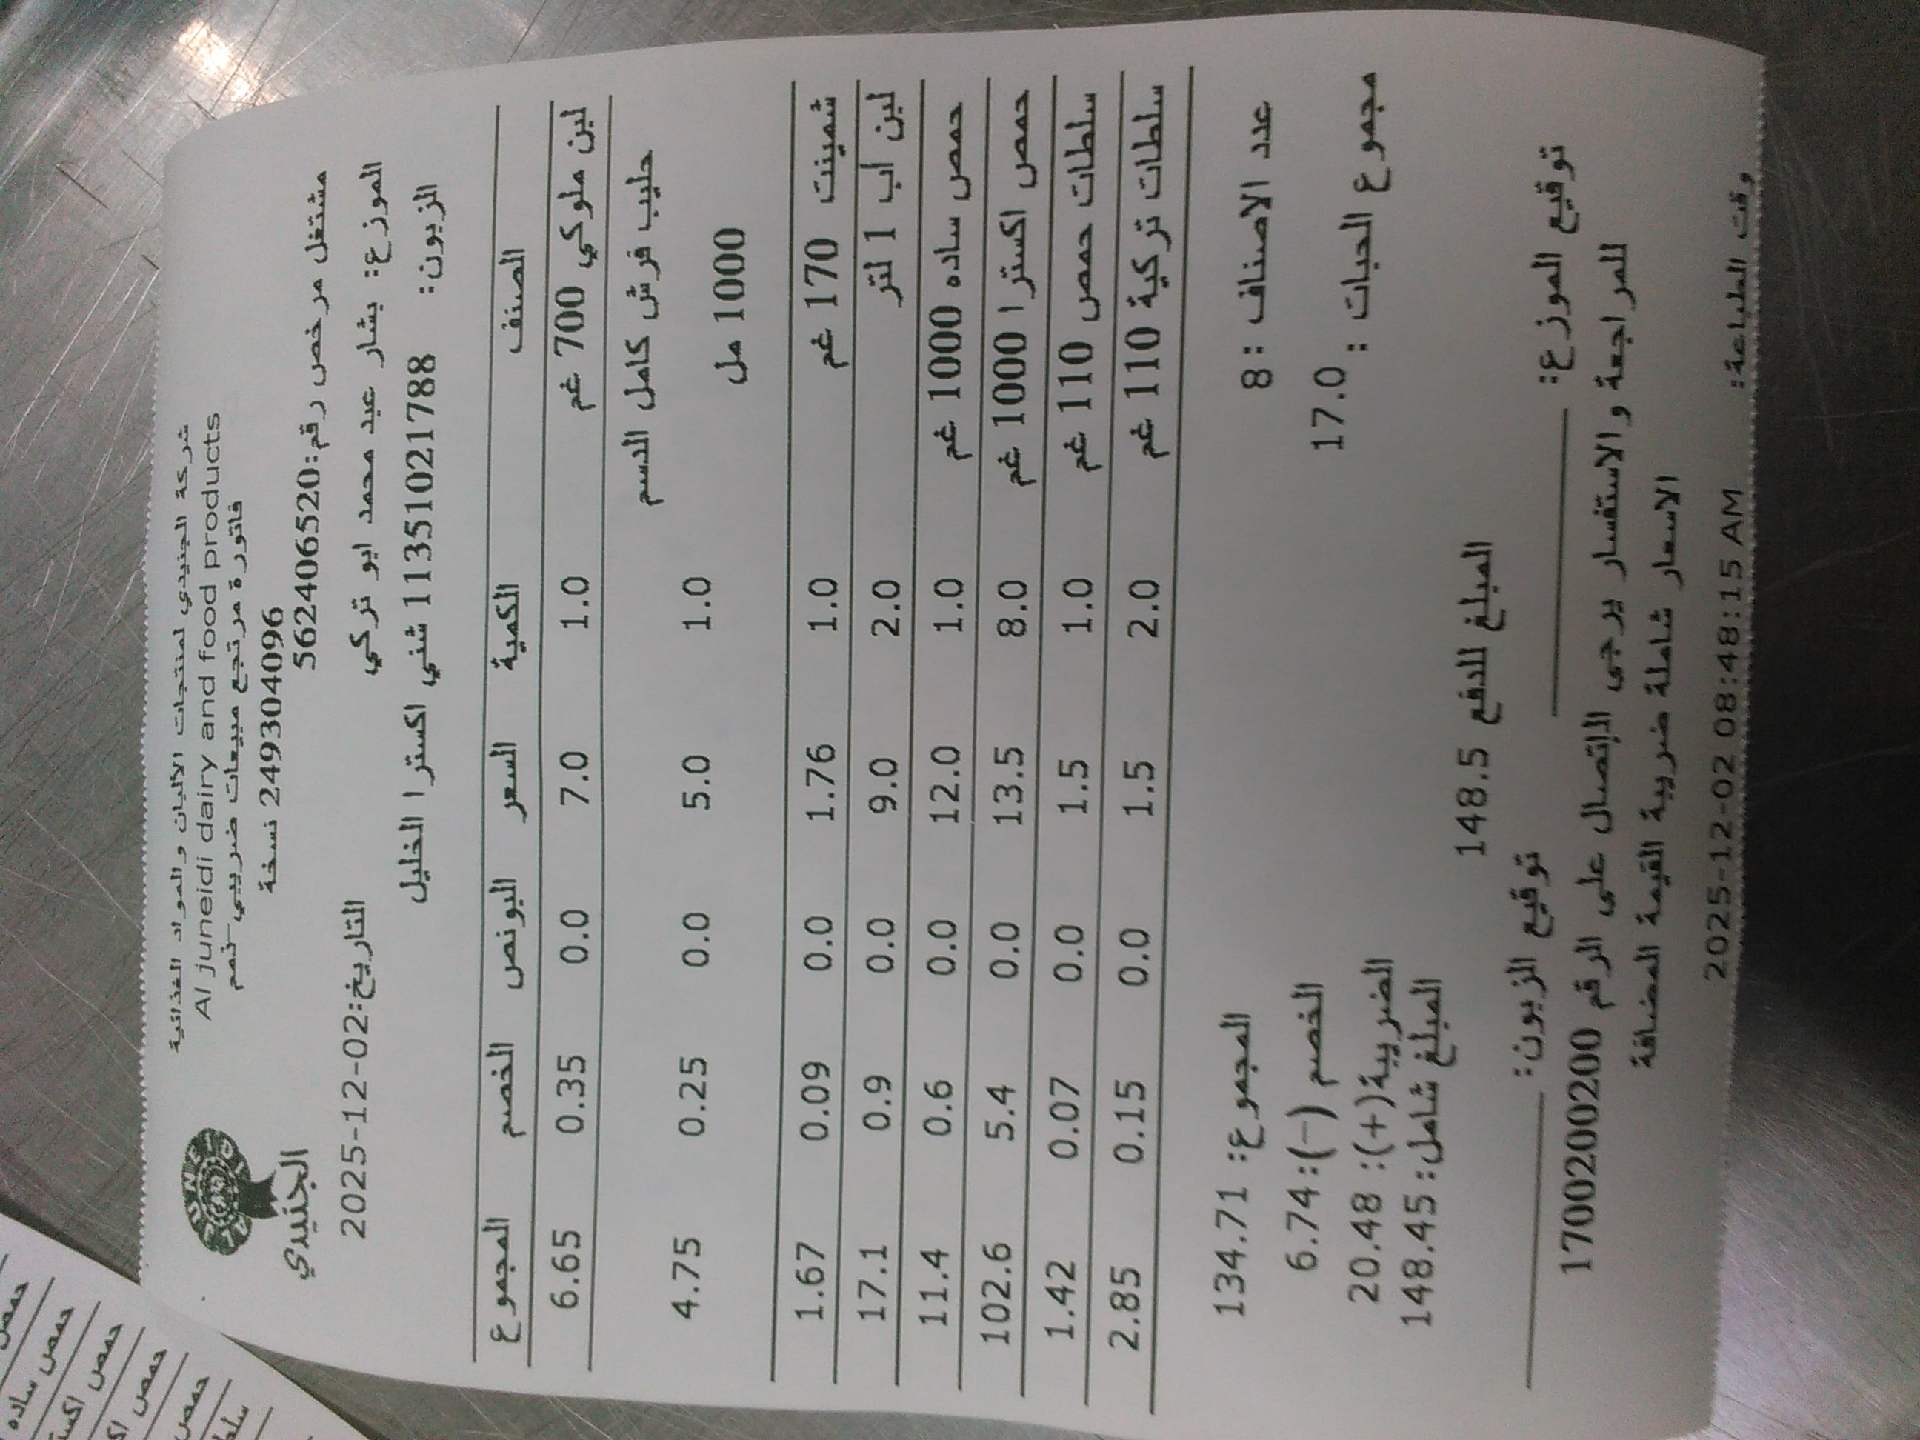 شركة الجنيدي لمنتجات الالبان والمواد الغذائية
Al juneidi dairy and food products
فاتورة مرتجع مبيعات ضريبي-ذمم
249304096 نسخة
الجنيدي
مشتغل مرخص رقم:562406520
الموزع: بشار عبد محمد ابو تركي
التاريخ:2025-12-02
الزبون: 11351021788 شني اكسترا الخليل
الصنف الكمية السعر البونص الخصم المجموع
لبن ملوكي 700 غم 1.0 7.0 0.0 0.35 6.65
حليب فرش كامل الدسم 1.0 5.0 0.0 0.25 4.75
1000 مل
شمينت 170 غم 1.0 1.76 0.0 0.09 1.67
لبن اب 1 لتر 2.0 9.0 0.0 0.9 17.1
حمص ساده 1000 غم 1.0 12.0 0.0 0.6 11.4
حمص اكسترا 1000 غم 8.0 13.5 0.0 5.4 102.6
سلطات حمص 110 غم 1.0 1.5 0.0 0.07 1.42
سلطات تركية 110 غم 2.0 1.5 0.0 0.15 2.85
عدد الاصناف : 8 المجموع: 134.71
مجموع الحبات : 17.0 الخصم (-): 6.74
الضريبة(+): 20.48
المبلغ شامل: 148.45
المبلغ للدفع 148.5
توقيع الموزع: توقيع الزبون:
للمراجعة والاستفسار يرجى الإتصال على الرقم 1700200200
الاسعار شاملة ضريبة القيمة المضافة
وقت الطباعة: 2025-12-02 08:48:15 AM
حمص ساده